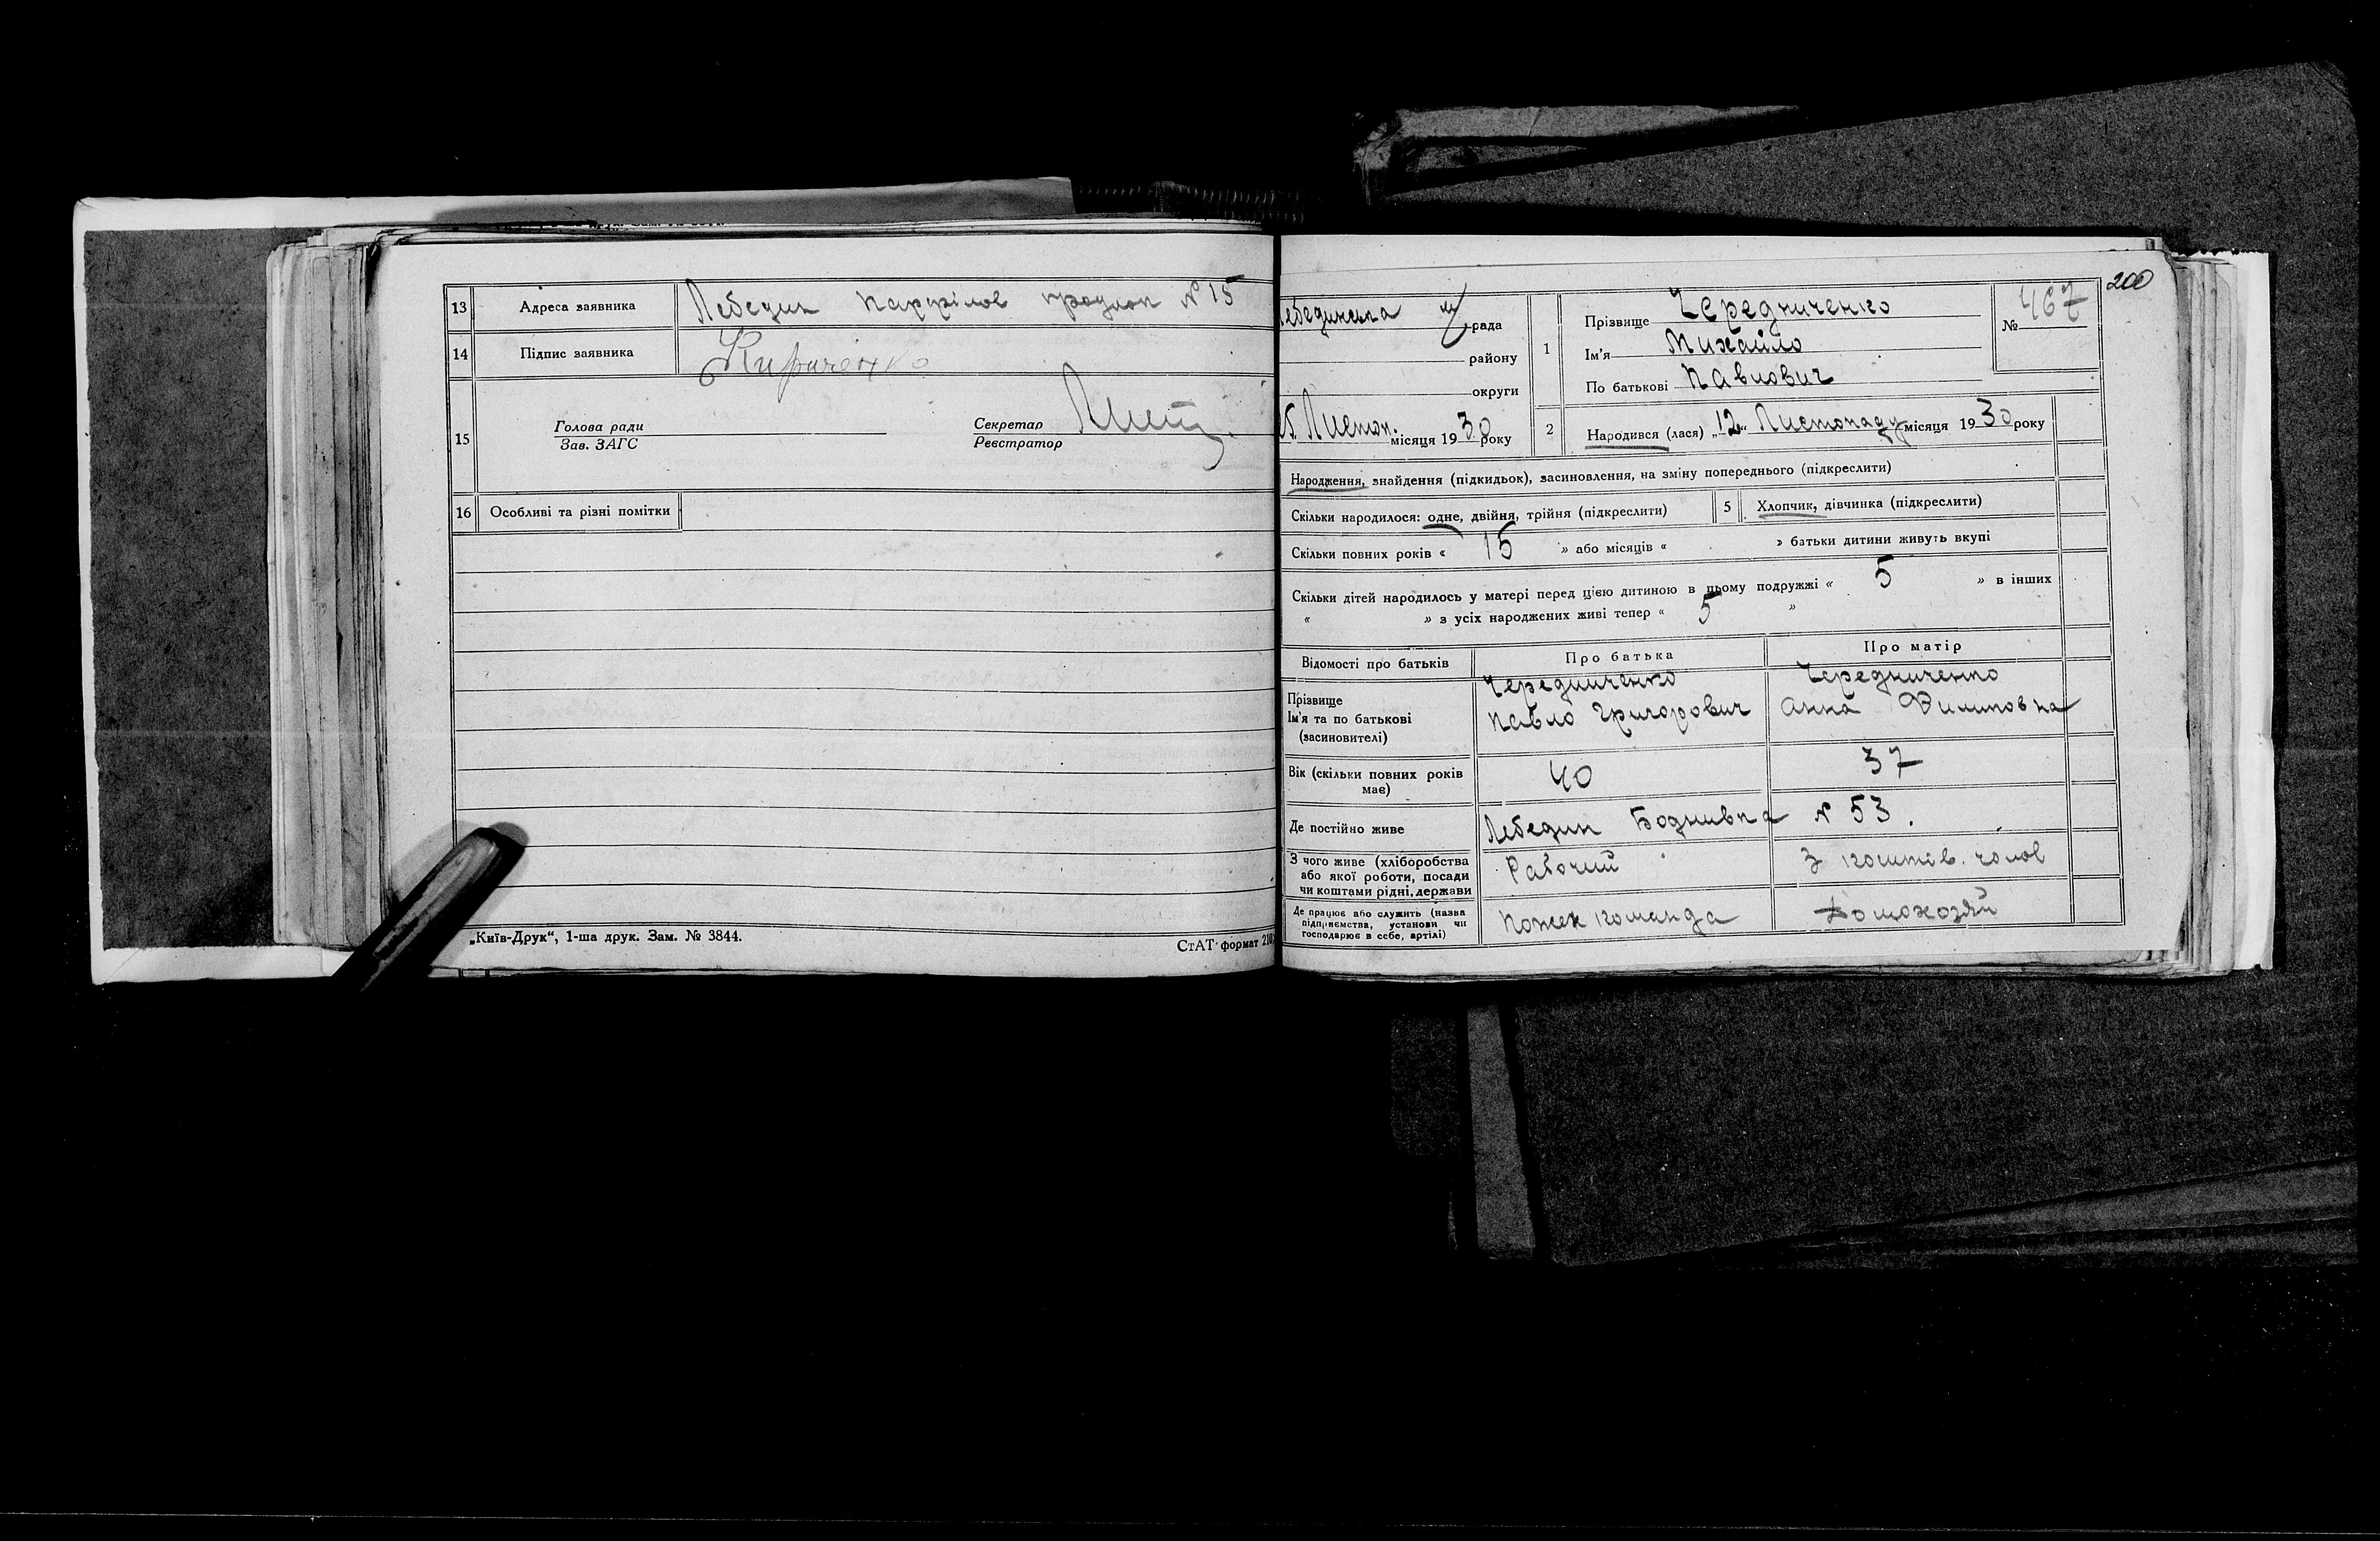 13 Адреса заявника Лебедин Панфілов продмоп № 15
14 Підпис заявника Кириченко
15 Голова ради Секретар
Зав. ЗАГС Реєстратор
16 Особливі та різні помітки
„Київ-Друк“, 1-ша друк. Зам. № 3844. СтАТ формат 210
200
Лебединська м/рада
району
округи
Листоп. місяця 1930 року
1 Прізвище Чередниченко
Ім'я Михайло
По батькові Павлович
№ 467
2 Народився (лася) „12“ Листопаду місяця 1930 року
Народження, знайдення (підкидьок), засиновлення, на зміну попереднього (підкреслити)
Скільки народилося: одне, двійня, трійня (підкреслити) 5 Хлопчик, дівчинка (підкреслити)
Скільки повних років « 15 » або місяців « » батьки дитини живуть вкупі
Скільки дітей народилось у матері перед цією дитиною в цьому подружжі « 5 » в інших
« » з усіх народжених живі тепер « 5 »
Відомості про батьків Про батька Про матір
Прізвище Чередниченко Чередниченко
Ім'я та по батькові Павло Григорович Анна Филиповна
(засиновителі)
Вік (скільки повних років 40 37
має)
Де постійно живе Лебедин Боднивка № 53.
З чого живе (хліборобства Рабочий З коштів. чолов
або якої роботи, посади
чи коштами рідні, держави
Де працює або служить (назва Пожеж команда Домохозяй
підприємства, установи чи
господарює в себе, артілі)